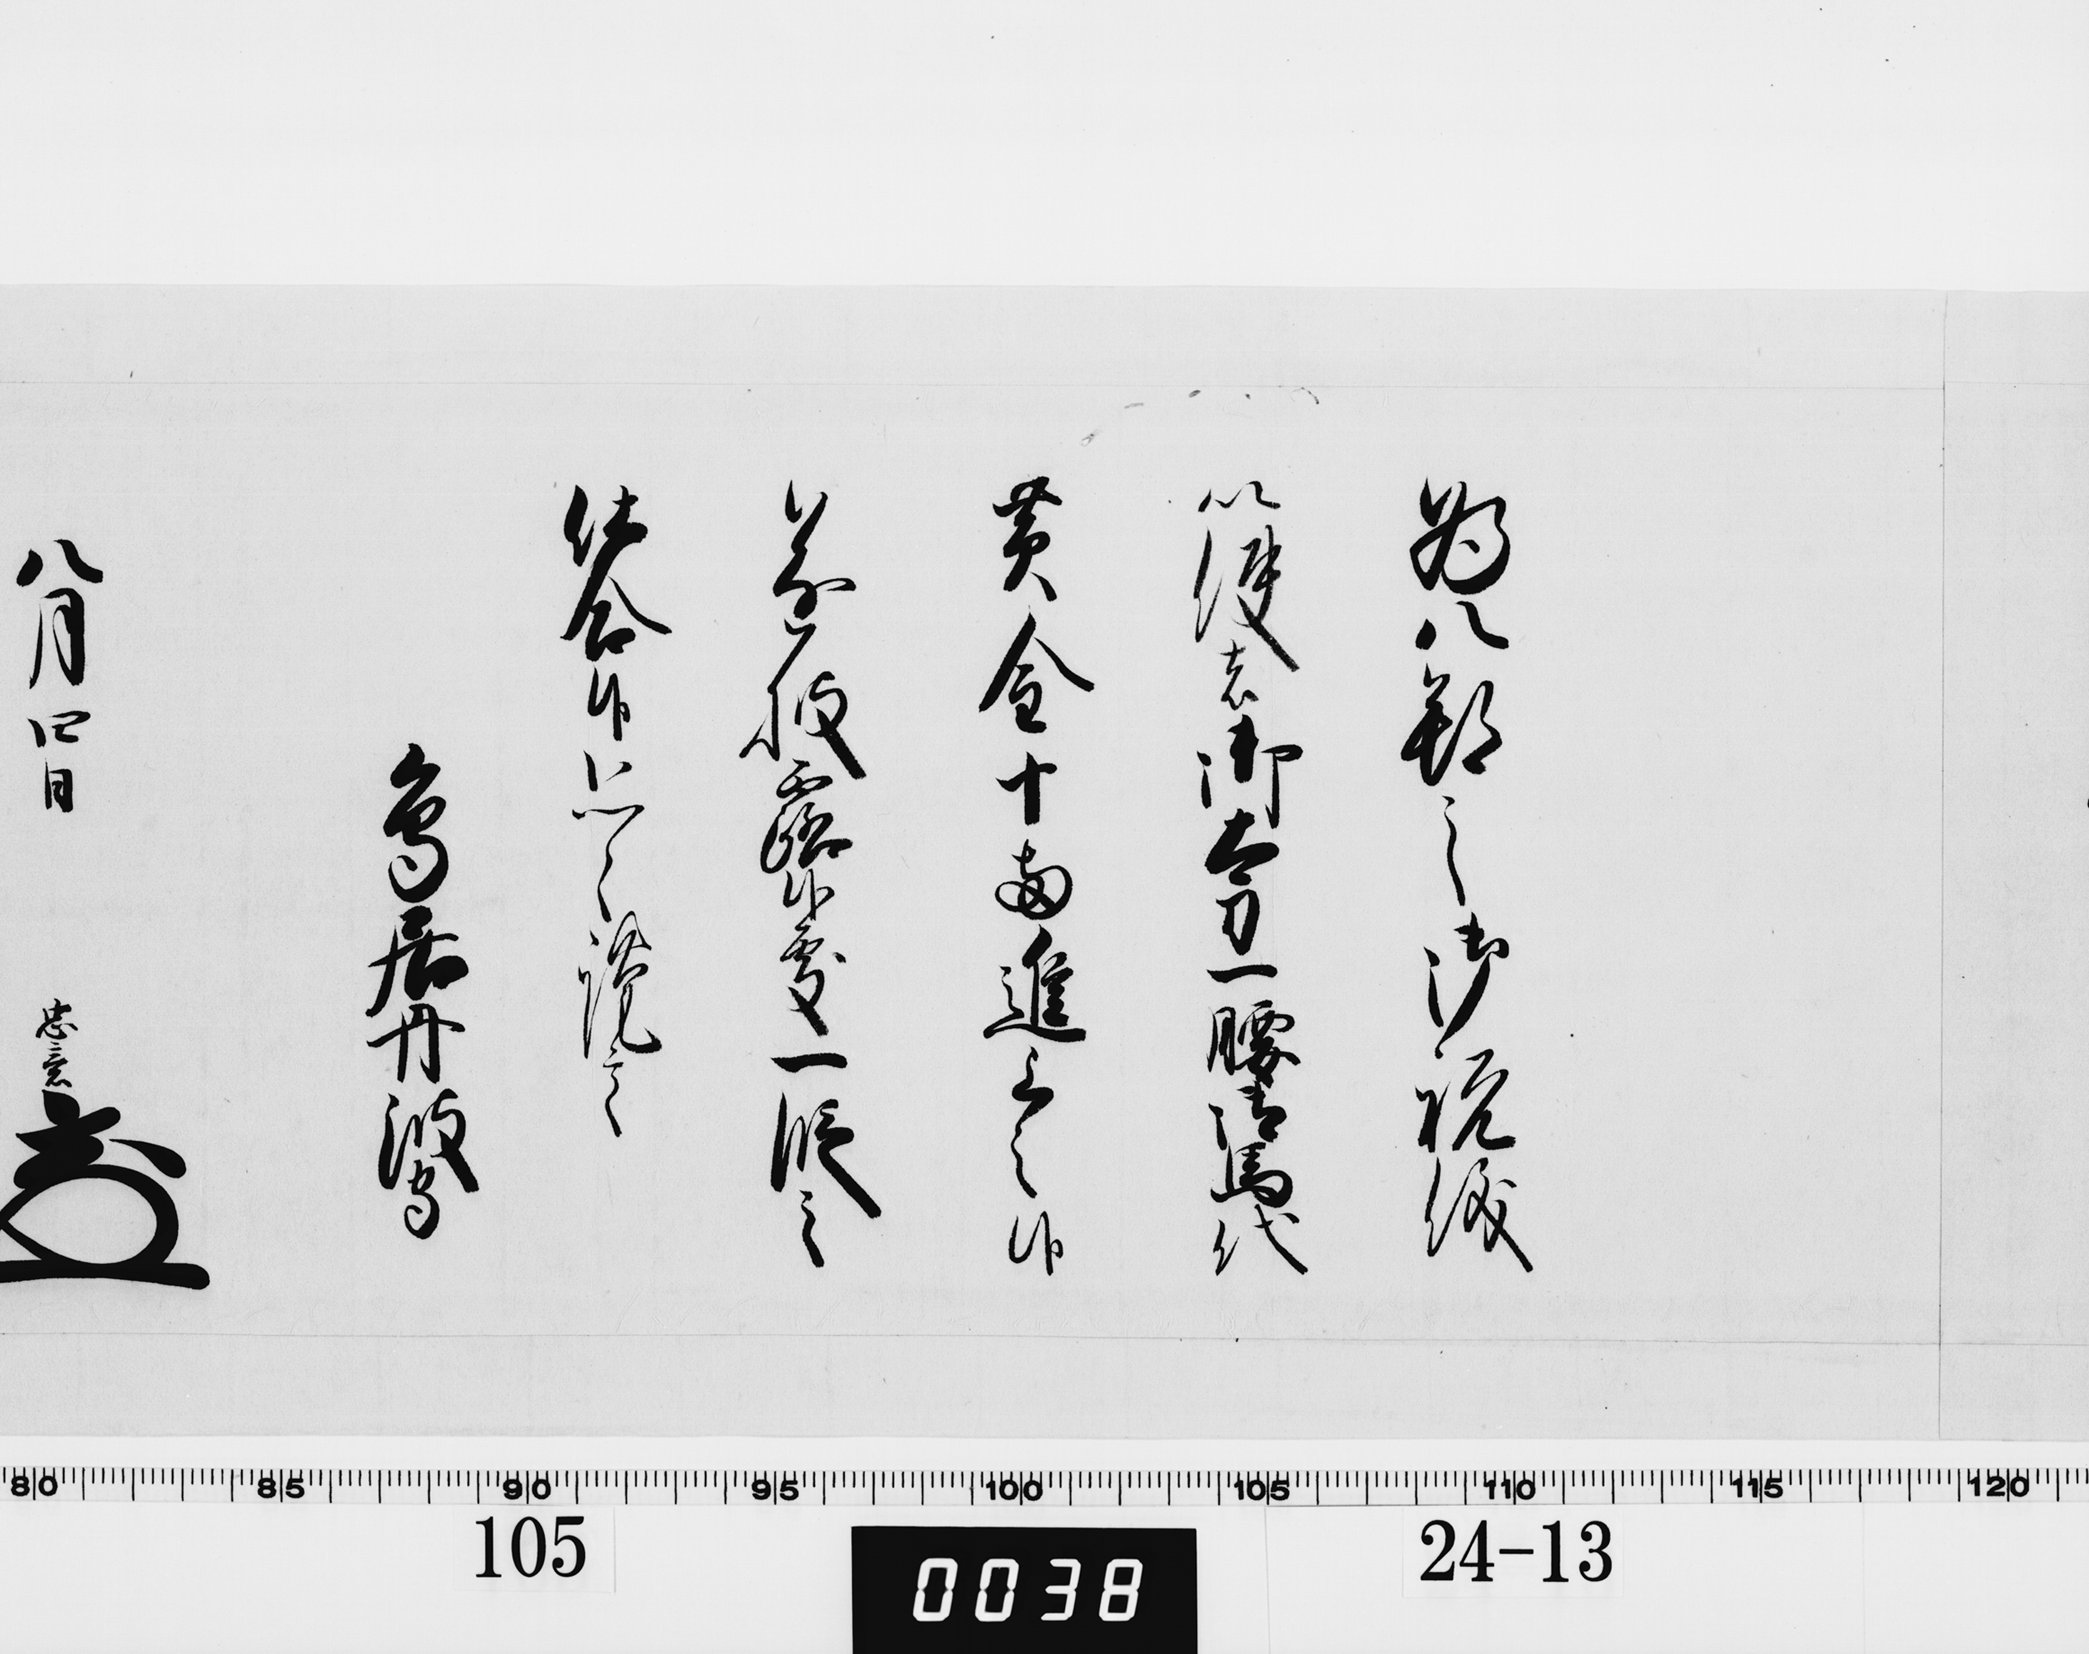 為八朔之御祝儀
以使者御太刀一腰御馬代
黄金十両進上之候
遂披露候處一段之
仕合候恐々謹言
鳥居丹波守
八月四日
忠意
80 85 90 95 100 105 110 115 120
105
0038
24-13